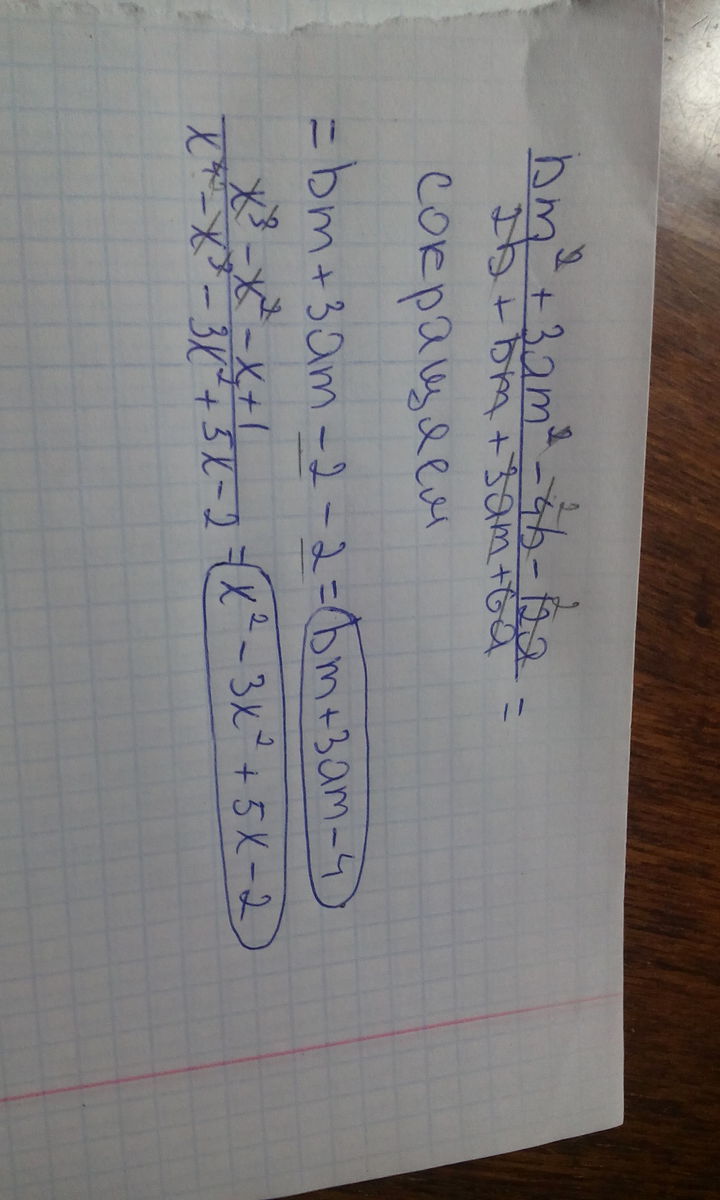 bm² + 3am² - 4b - 12a
2b + bm + 3am + 6a =
сокращаем
= bm + 3am - 2 - 2 = bm + 3am - 4
x³ - x² - x + 1
x⁴ - x³ - 3x² + 5x - 2 = x² - 3x² + 5x - 2